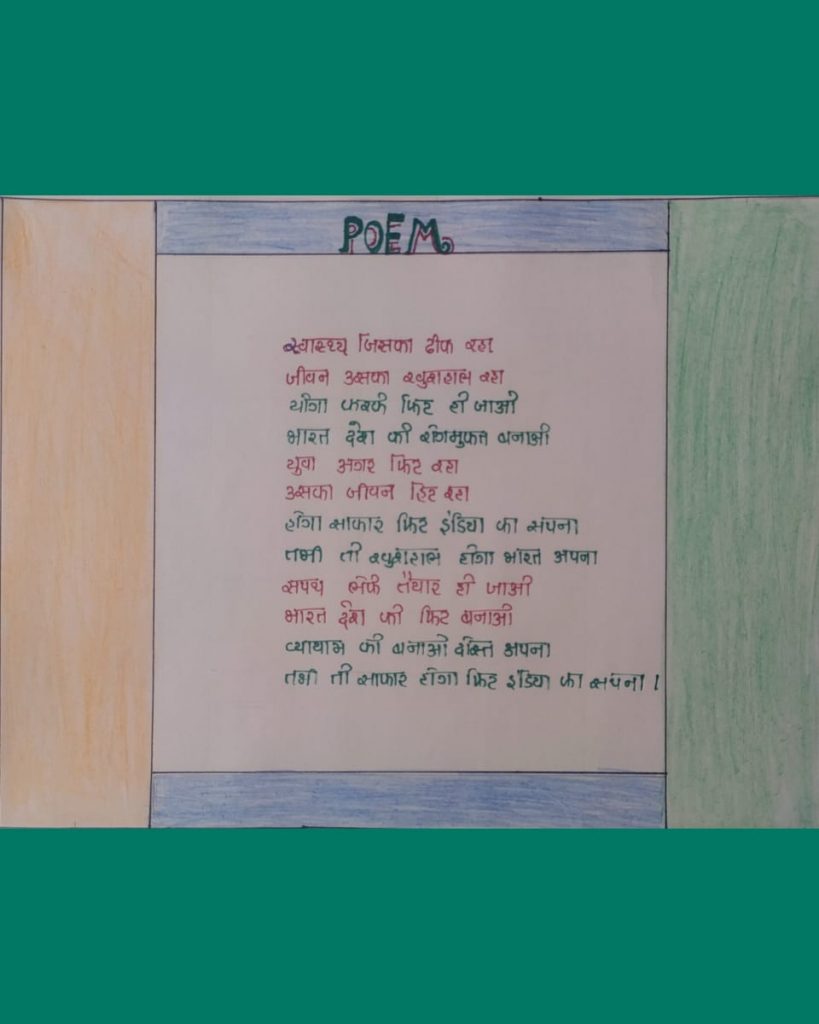 POEM
स्वास्थ्य जिसका ठीक रहा
जीवन उसका खुशहाल रहा
योगा करके फिट हो जाओ
भारत देश को रोगमुक्त बनाओ
युवा अगर फिट रहा
उसका जीवन हिट रहा
होगा साकार फिट इंडिया का सपना
तभी तो खुशहाल होगा भारत अपना
सपथ लेके तैयार हो जाओ
भारत देश को फिट बनाओ
व्यायाम को बनाओ दोस्त अपना
तभी तो साकार होगा फिट इंडिया का सपना।